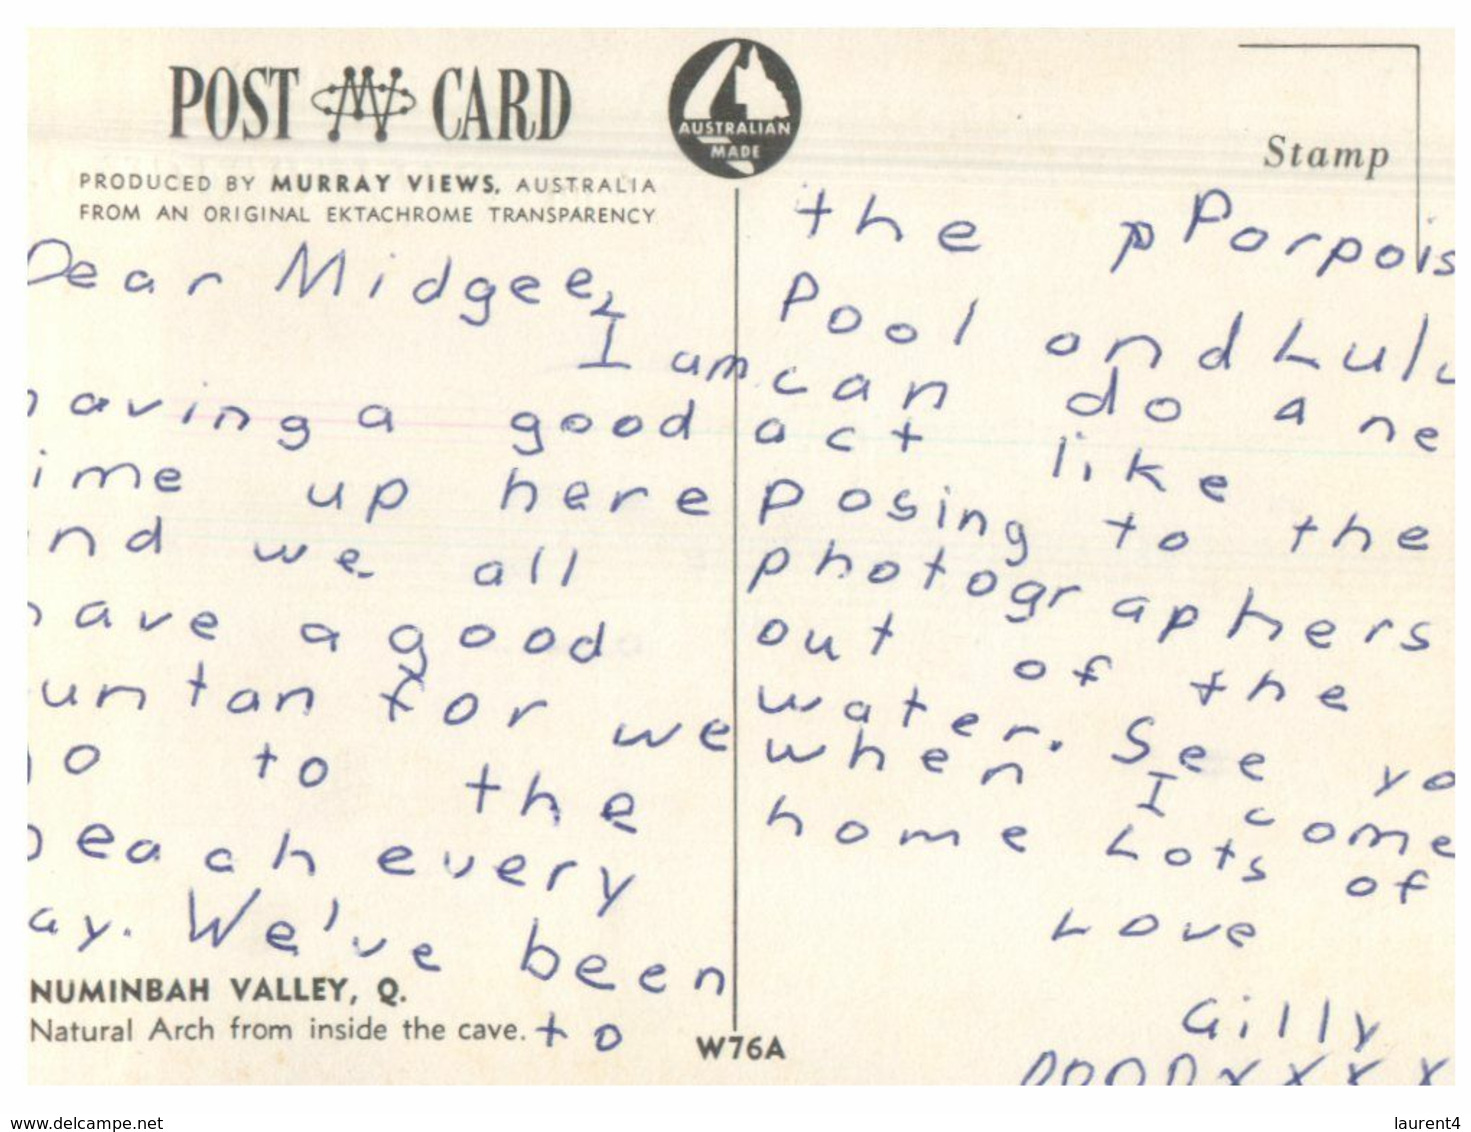 POST CARD
AUSTRALIAN
MADE
Stamp
PRODUCED BY MURRAY VIEWS, AUSTRALIA
FROM AN ORIGINAL EKTACHROME TRANSPARENCY
Dear Midgee,
I am
having a good
ime up here
nd we all
have a good
un tan for we
go to the
beach every
ay. We've been
to
the pPorpois
Pool and Lulu
can do a ne
act like
posing to the
photographers
out of the
water. See yo
when I come
home Lots of
Love
Gilly
OOOOXXXX
NUMINBAH VALLEY, Q.
Natural Arch from inside the cave.
W76A
www.delcampe.net
laurent4